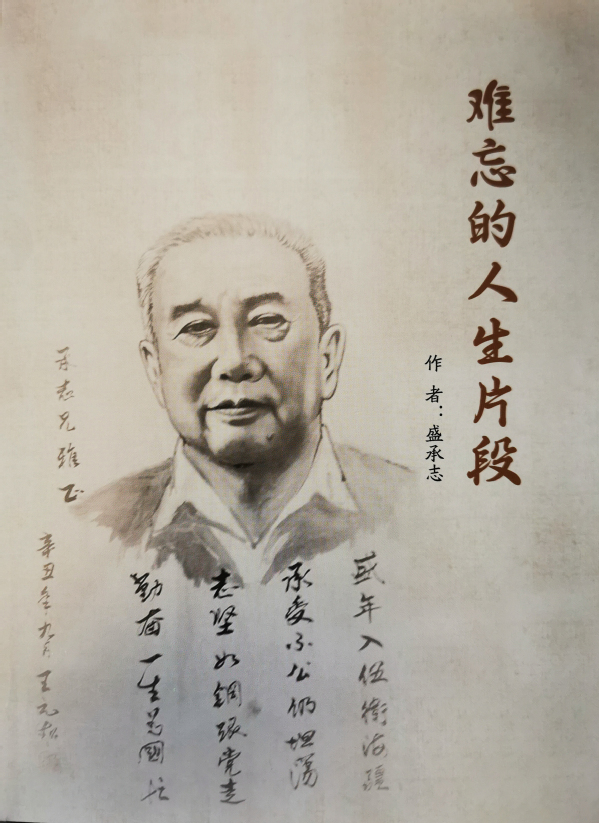 难忘的人生片段
作者：盛承志
盛年入伍衛海疆
承受不公仍坦蕩
志坚如鋼跟党走
勤奋一生為國忙
承志兄雅正
辛丑年九月王元